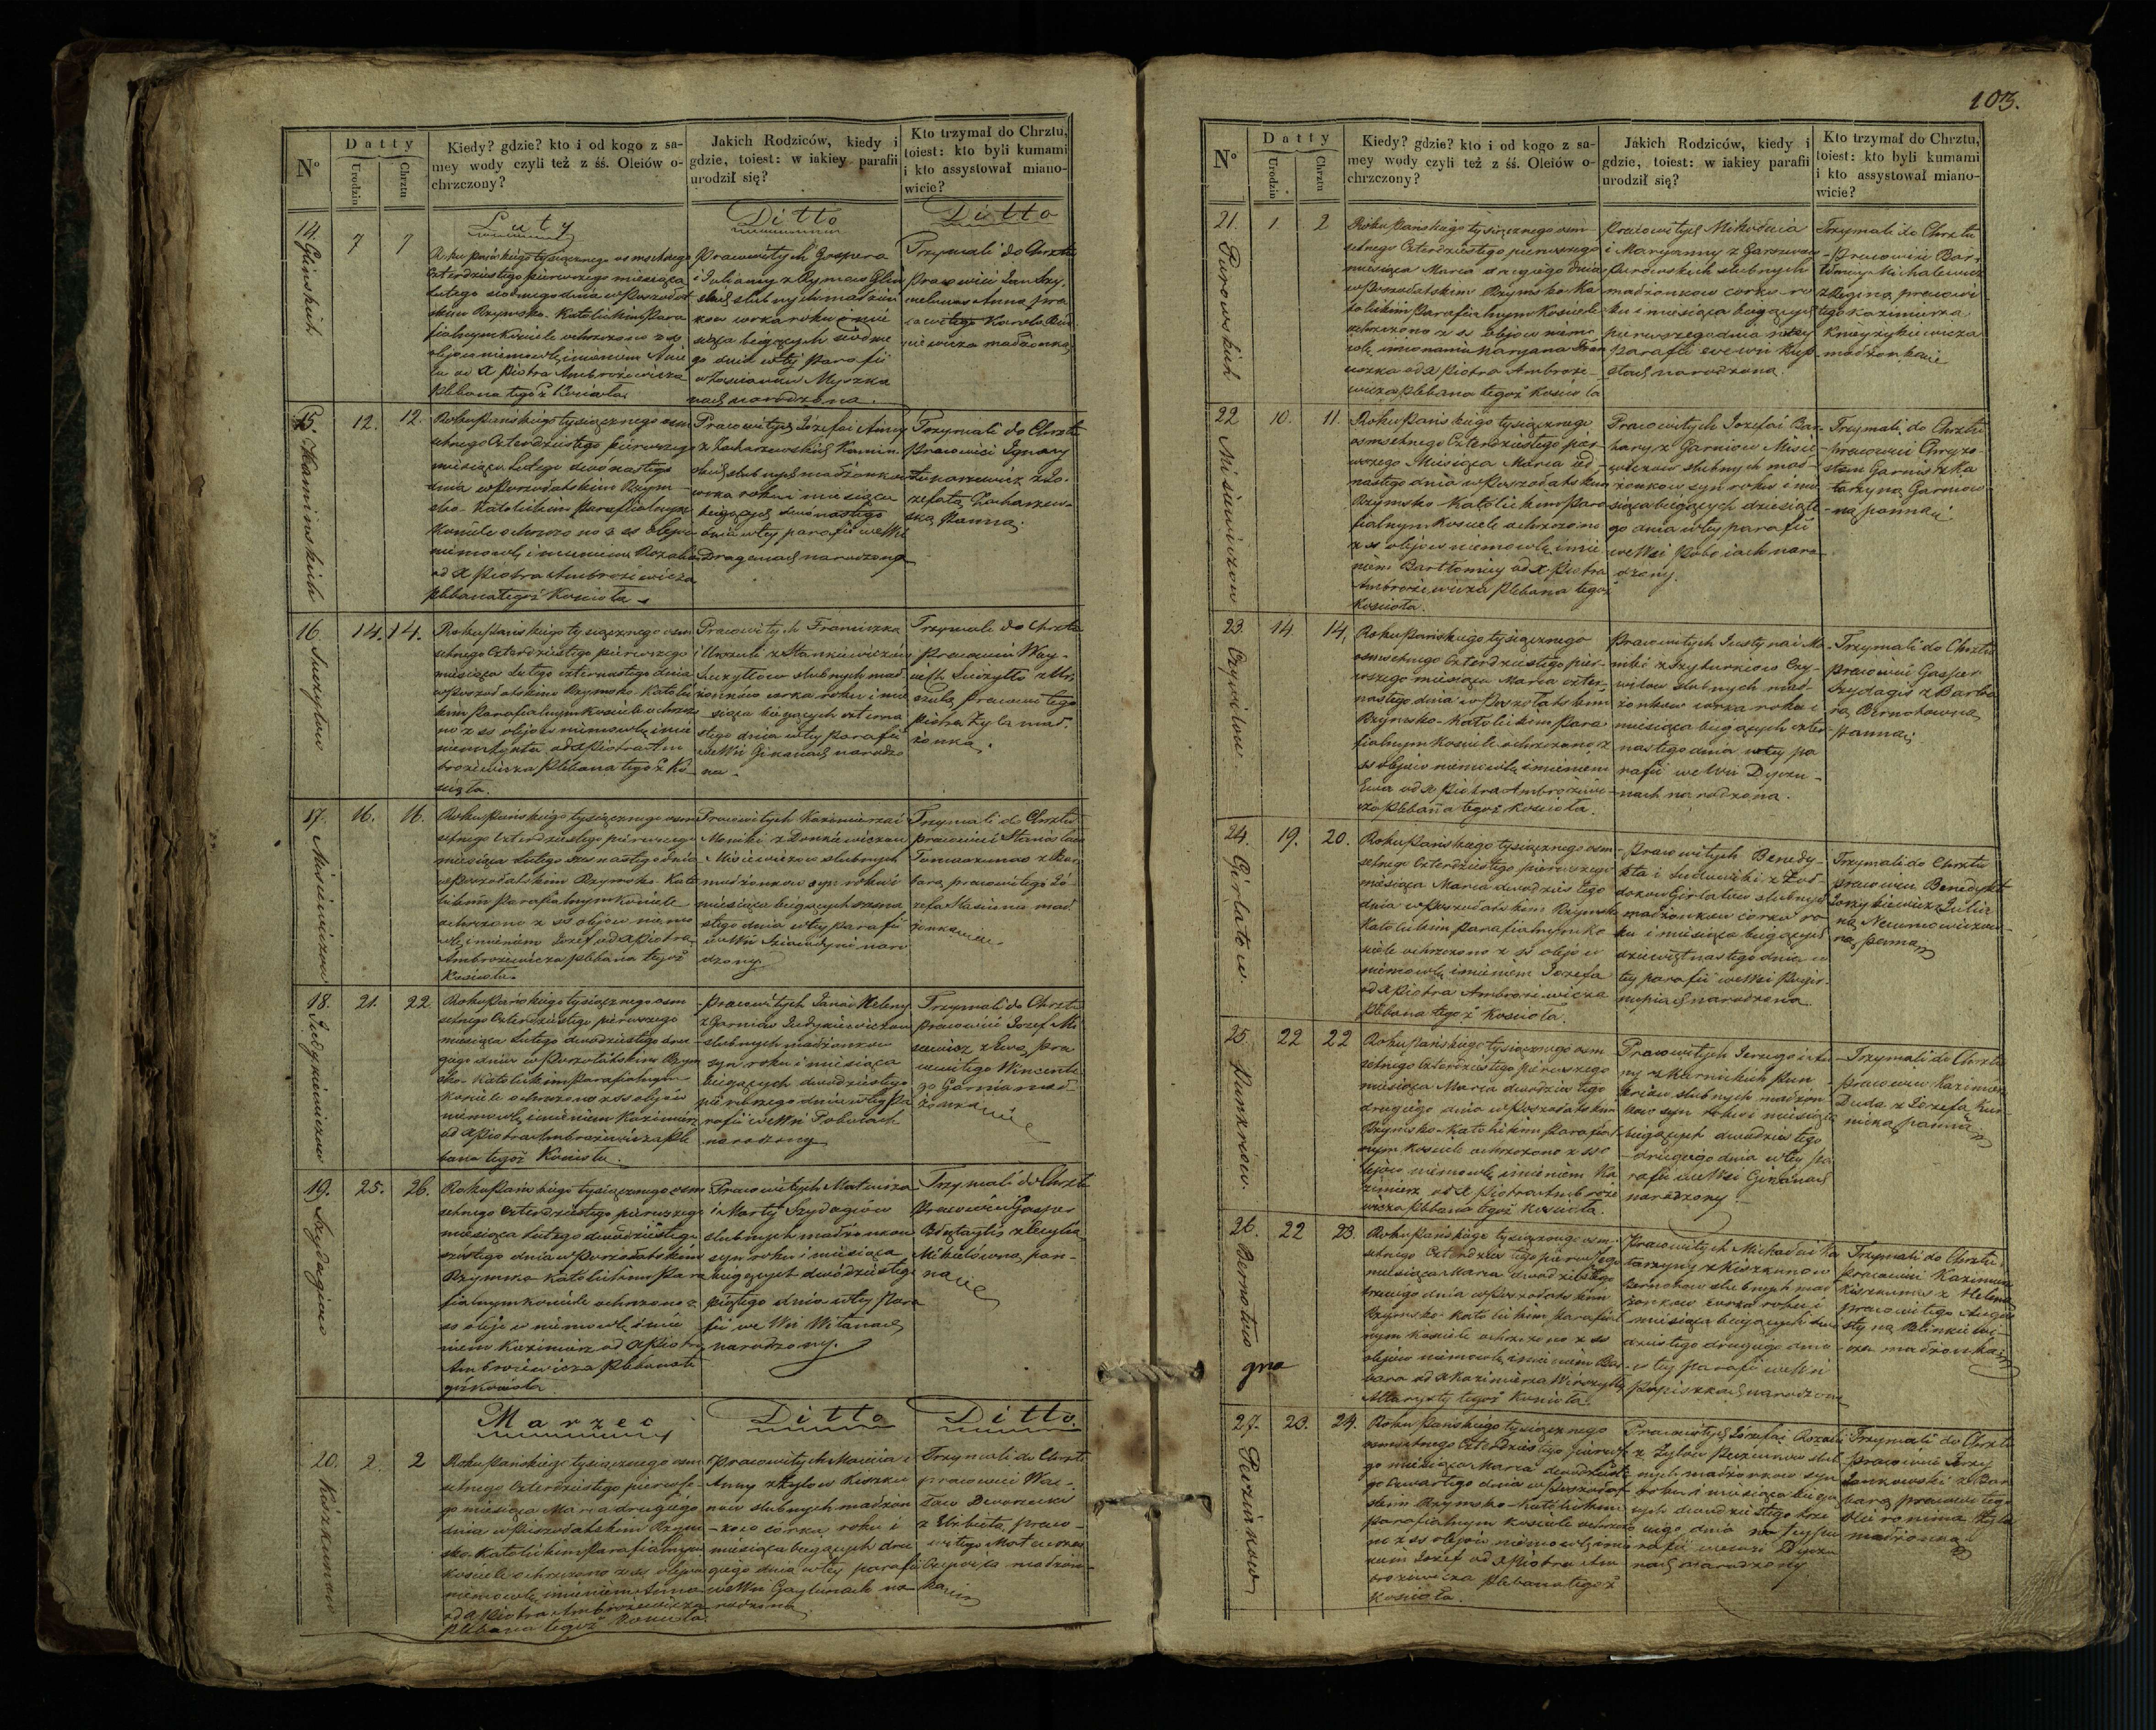 N°
Datty
Urodzin
Chrztu
Kiedy? gdzie? kto i od kogo z sa-
mey wody czyli też z śś. Oleiów o-
chrzczony?
Jakich Rodziców, kiedy i
gdzie, toiest: w iakiey parafii
urodził się?
Kto trzymał do Chrztu,
toiest: kto byli kumami
i kto assystował miano-
wicie?
Luty
Ditto
Ditto
14. 7 7
Glinskich
Roku pańskiego tysiącznego osmsetnego
czterdziestego pierwszego miesiąca
Lutego siodmego dnia w Poszołat
skim Rzymsko-Katolickim Para
fialnym Kościele ochrzczono z ss
olejow niemowle imieniem
od X Piotra Ambrożewicza
Plebana tegoż Kościoła
Pracowitych Gaspera
i Julianny z Rymow Glin
skich slubnych małżon
kow corka roku
biegących siodme
go dnia w tey Parafii
narodzona.
Trzymali do Chrztu
Pracowici
Anna pra
cowitego Karola
małżonka
15. 12. 12.
Kaminskich
Roku Pańskiego tysiącznego osm
setnego Czterdziestego pierwszego
miesiąca Lutego dwonastego
dnia w Poszołatskim Rzym
sko-Katolickim Parafialnym
Kościele ochrzczono z ss Olejow
niemowle imieniem Rozalia
od X Piotra Ambrożewicza
Plebana tegoż Kościoła
Pracowitych Józefa i Anny
z Zacharzewskich Kamin
skich slubnych małżonkow
corka roku i miesiąca
biegących dwónastego
dnia w tey parafii we Wsi
Draganach narodzona
Trzymali do Chrztu
Pracowici Ignacy
z Jo-
zefatą Zacharzew-
ską Panną.
16. 14. 14.
Roku Pańskiego tysiącznego osm
setnego Czterdziestego pierwszego
miesiąca Lutego czternastego dnia
w Poszołatskim Rzymsko-Katolic
kim Parafialnym Kościele ochrzczo
no z ss olejow niemowle imie
niem Agata od X Piotra Am
brożewicza Plebana tegoż Ko
scioła.
Pracowitych Franciszka
i Urszuli z Stankiewiczow
slubnych mał
żonkow corka roku i mie
siąca biegących czterna
stego dnia w tey parafii
we Wsi Ginkanach narodzo
na.
Trzymali do Chrztu
Pracowici Woy-
ciech z Ur-
szulą pracowitego
Piotra mał
żonką.
17. 16. 16.
Misiewiczow
Roku Pańskiego tysiącznego osm
setnego Czterdziestego pierwszego
miesiąca Lutego szesnastego dnia
w Poszołatskim Rzymsko-Kato
lickim Parafialnym Kościele
ochrzczono z ss olejow niemo
wle imieniem Jozef od X Piotra
Ambrożewicza Plebana tegoż
Kościoła.
Pracowitych Kazimierza i
Moniki z
Misiewiczow slubnych
małżonkow syn roku i
miesiąca biegących szesna
stego dnia w tey parafii
we Wsi naro
dzony
Trzymali do Chrztu
pracowici Stanisław
Tomaszunas z Bar
barą, pracowitego Jó
zefa mał
żonką
18. 21. 22.
Roku Pańskiego tysiącznego osm
setnego Czterdziestego pierwszego
miesiąca Lutego dwodziestego dru
giego dnia w Poszołatskim Rzym
sko-Katolickim Parafialnym
Kościele ochrzczono z ss olejow
niemowle imieniem Kazimierz
od X Piotra Ambrożewicza Ple
bana tegoż Kościoła.
Pracowitych Jana i Heleny
z Garniow
slubnych małżonkow
syn roku i miesiąca
biegących dwodziestego
pierwszego dnia w tey Pa
rafii we Wsi Pobotach
narodzony
Trzymali do Chrztu
pracowici Jozef Mi
siewicz z Ewą, pra
cowitego Wincente
go Garnia mał
żonką
19. 25. 26.
Szydagiow
Roku Pańskiego tysiącznego osm
setnego Czterdziestego pierwszego
miesiąca Lutego dwódziestego
szóstego dnia w Poszołatskim
Rzymsko-Katolickim Para
fialnym Kościele ochrzczono z
ss olejow niemowle imie
niem Kazimierz od X Piotra
Ambrożewicza Plebana te
goż Kościoła
Pracowitych Mateusza
i Marty Szydagiow
slubnych małżonkow
syn roku i miesiąca
biegących dwódziestego
piętego dnia w tey Para
fii we Wsi Witanach
narodzony.
Trzymali do Chrztu
Pracowici Gasper
z Cecylią
Mikielówną, pan-
ną
Marzec
Ditto
Ditto.
20. 2. 2
Kiszkunow
Roku Pańskiego tysiącznego osm
setnego Czterdziestego pierwsze-
go miesiąca Marca drugiego
dnia w Poszołatskim Rzym
sko-Katolickim Parafialnym
Kościele ochrzczono z ss olejow
niemowle imieniem Anna
od X Piotra Ambrożewicza
Plebana tegoż Kościoła
Pracowitych Macieia i
Anny z Zyłow Kiszku
now slubnych małżon
kow córka, roku i
miesiąca biegących dru
giego dnia w tey parafii
we Wsi na
rodzona
Trzymali do Chrztu
pracowici Wac-
ław Dworecki
z Elżbietą, praco-
witego Mateusza
małżon-
ką
103.
N°
Datty
Urodzin
Chrztu
Kiedy? gdzie? kto i od kogo z sa-
mey wody czyli też z śś. Oleiów o-
chrzczony?
Jakich Rodziców, kiedy i
gdzie, toiest: w iakiey parafii
urodził się?
Kto trzymał do Chrztu,
toiest: kto byli kumami
i kto assystował miano-
wicie?
21. 1 2
Purowskich
Roku Pańskiego tysiącznego osm
setnego Czterdziestego pierwszego
miesiąca Marca drugiego dnia
w Poszołatskim Rzymsko-Ka
tolickim Parafialnym Kościele
ochrzczono z ss olejow niemo
wle imionami Maryana Fran
ciszka od X Piotra Ambroże-
wicza Plebana tegoż Kościoła
Pracowitych Mikołaia
i Maryanny z
Purowskich slubnych
małżonkow corka ro
ku i miesiąca biegących
pierwszego dnia w tey
Parafii we wsi
narodzona
Trzymali do Chrztu
Pracowici Bar-
tłomiey Michalewicz
z Reginą, pracowi
tego Kazimierza
małżonką
22 10. 11.
Misiewiczow
Roku Pańskiego tysiącznego
osmsetnego Czterdziestego pier-
wszego Miesiąca Marca jed-
nastego dnia w Poszołatskim
Rzymsko-Katolickim Para
fialnym Kościele ochrzczono
z ss olejow niemowle imie
niem Bartłomiey od X Piotra
Ambrożewicza Plebana tegoż
Kościoła.
Pracowitych Jozefa i Bar-
bary z Garniow Misie
wiczow slubnych mał-
żonkow syn roku i mie
siąca biegących dziesiąte
go dnia w tey parafii
we Wsi Pobociach naro
dzony.
Trzymali do Chrztu
pracowici Chryzo-
stom Garnis z Ka
tarzyną Garniow-
ną panną
23. 14 14.
Czywilow
Roku Pańskiego tysiącznego
osmsetnego Czterdziestego pier-
wszego miesiąca Marca czter-
nastego dnia w Poszołatskim
Rzymsko-Katolickim Para
fialnym Kościele ochrzczono z
ss olejow niemowle imieniem
Ewa od X Piotra Ambrożewi-
cza Plebana tegoż Kościoła.
Pracowitych Justyna i
Czy-
wilow slubnych mał-
żonkow corka roku i
miesiąca biegących czter
nastego dnia w tey pa
rafii we Wsi
narodzona.
Trzymali do Chrztu
Pracowici Gasper
Szydagis z Barba
rą Bernotowną
panną
24. 19. 20.
Girlatow.
Roku Pańskiego tysiącznego osm
setnego Czterdziestego pierwszego
miesiąca Marca dwodziestego
dnia w Poszołatskim Rzymsko
Katolickim Parafialnym Ko
sciele ochrzczono z ss olejow
niemowle imieniem Jozefa
od X Piotra Ambrożewicza
Plebana tegoż Kościoła.
Pracowitych Benedy-
kta i Ludwiki z
Girlatow slubnych
małżonkow córka ro
ku i miesiąca biegących
dziewiętnastego dnia w
tey parafii we Wsi
narodzona.
Trzymali do Chrztu
pracowici Benedykt
z Julia
ną Neumowiczow-
ną, panną
25. 22 22
Roku Pańskiego tysiącznego osm
setnego Czterdziestego pierwszego
miesiąca Marca dwodziestego
drugiego dnia w Poszołatskim
Rzymsko-Katolickim Parafial-
nym Kościele ochrzczono z ss o
lejow niemowle imieniem Ka
zimierz od X Piotra Ambroże
wicza Plebana tegoż Kościoła.
Pracowitych Jerzego i
ny z Karnickich
slubnych małżon
kow syn roku i miesiąca
biegących dwodziestego
drugiego dnia w tey pa
rafii we Wsi Ginkanach
narodzony
Trzymali do Chrztu
pracowici Kazimierz
Duda z Jozefą
panną
26. 22 23.
Roku Pańskiego tysiącznego osm-
setnego Czterdziestego pierwszego
miesiąca Marca dwodziestego
trzeciego dnia w Poszołatskim
Rzymsko-Katolickim Parafial
nym Kościele ochrzczono z ss
olejow niemowle imieniem Bar-
bara od X Kazimierza
Altarysty tegoż Kościoła.
Pracowitych Michała i Ka
tarzyny z Kiszkunow
Bernotow slubnych mał
żonkow corka roku i
miesiąca biegących dwo
dziestego drugiego dnia
w tey parafii we Wsi
Popiszkach narodzona
Trzymali do Chrztu
pracowici Kazimierz
Kiszkunas z Heleną
pracowitego Augu
styna
małżonką
27. 23. 24.
Roku Pańskiego tysiącznego
osmsetnego Czterdziestego pierwsze
go miesiąca Marca dwodzieste
go czwartego dnia w Poszołat
skim Rzymsko-Katolickim
Parafialnym Kościele ochrzczo
no z ss olejow niemowle imie
niem Jozef od X Piotra Am
brożewicza Plebana tegoż
Kościoła.
Pracowitych Józefa i Rozalii
z Zylow slub
nych małżonkow syn
roku i miesiąca biegą
cych dwodziestego trze
ciego dnia w tey pa
rafii we wsi
narodzony
Trzymali do Chrztu
pracowici Jerzy
Jankowski z Bar
barą pracowitego
Hieronima
małżonką